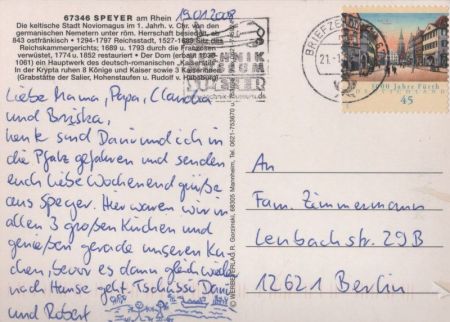 67346 SPEYER am Rhein 19.01.2008
Die keltische Stadt Noviomagus im 1. Jahrh. v. Chr. von den
germanischen Nemetern unter röm. Herrschaft besiedelt, ab
843 ostfränkisch • 1294-1797 Reichstadt, 1527-1689 Sitz des
Reichskammergerichts; 1689 u. 1793 durch die Franzosen
verwüstet, 1774 u. 1852 restauriert • Der Dom (erbaut
1061) ein Hauptwerk des deutsch-romanischen
In der Krypta ruhen 8 Könige und Kaiser sowie 3 Kaiserinnen
(Grabstätte der Salier, Hohenstaufen u. Rudolf v. Habsburg)
TECHNIK
MUSEUM
SPEYER
BRIEFZENTRUM
21.
1000 Jahre Fürth
DEUTSCHLAND
45
Liebe Mama, Papa, Claudia
und
heute sind Dani und ich in
die Pfalz gefahren und senden
euch liebe Wochenendgrüße
aus Speyer. Hier waren wir in
allen 3 großen Kirchen und
genießen gerade unseren Ku-
chen, bevor es dann gleich wieder
nach Hause geht. Tschüssi Dani
und Robert
© WERBEVERLAG R. Gorzinski, 68305 Mannheim, Tel. 0621-753670
An
Fam. Zimmermann
Lenbachstr. 29B
12621 Berlin